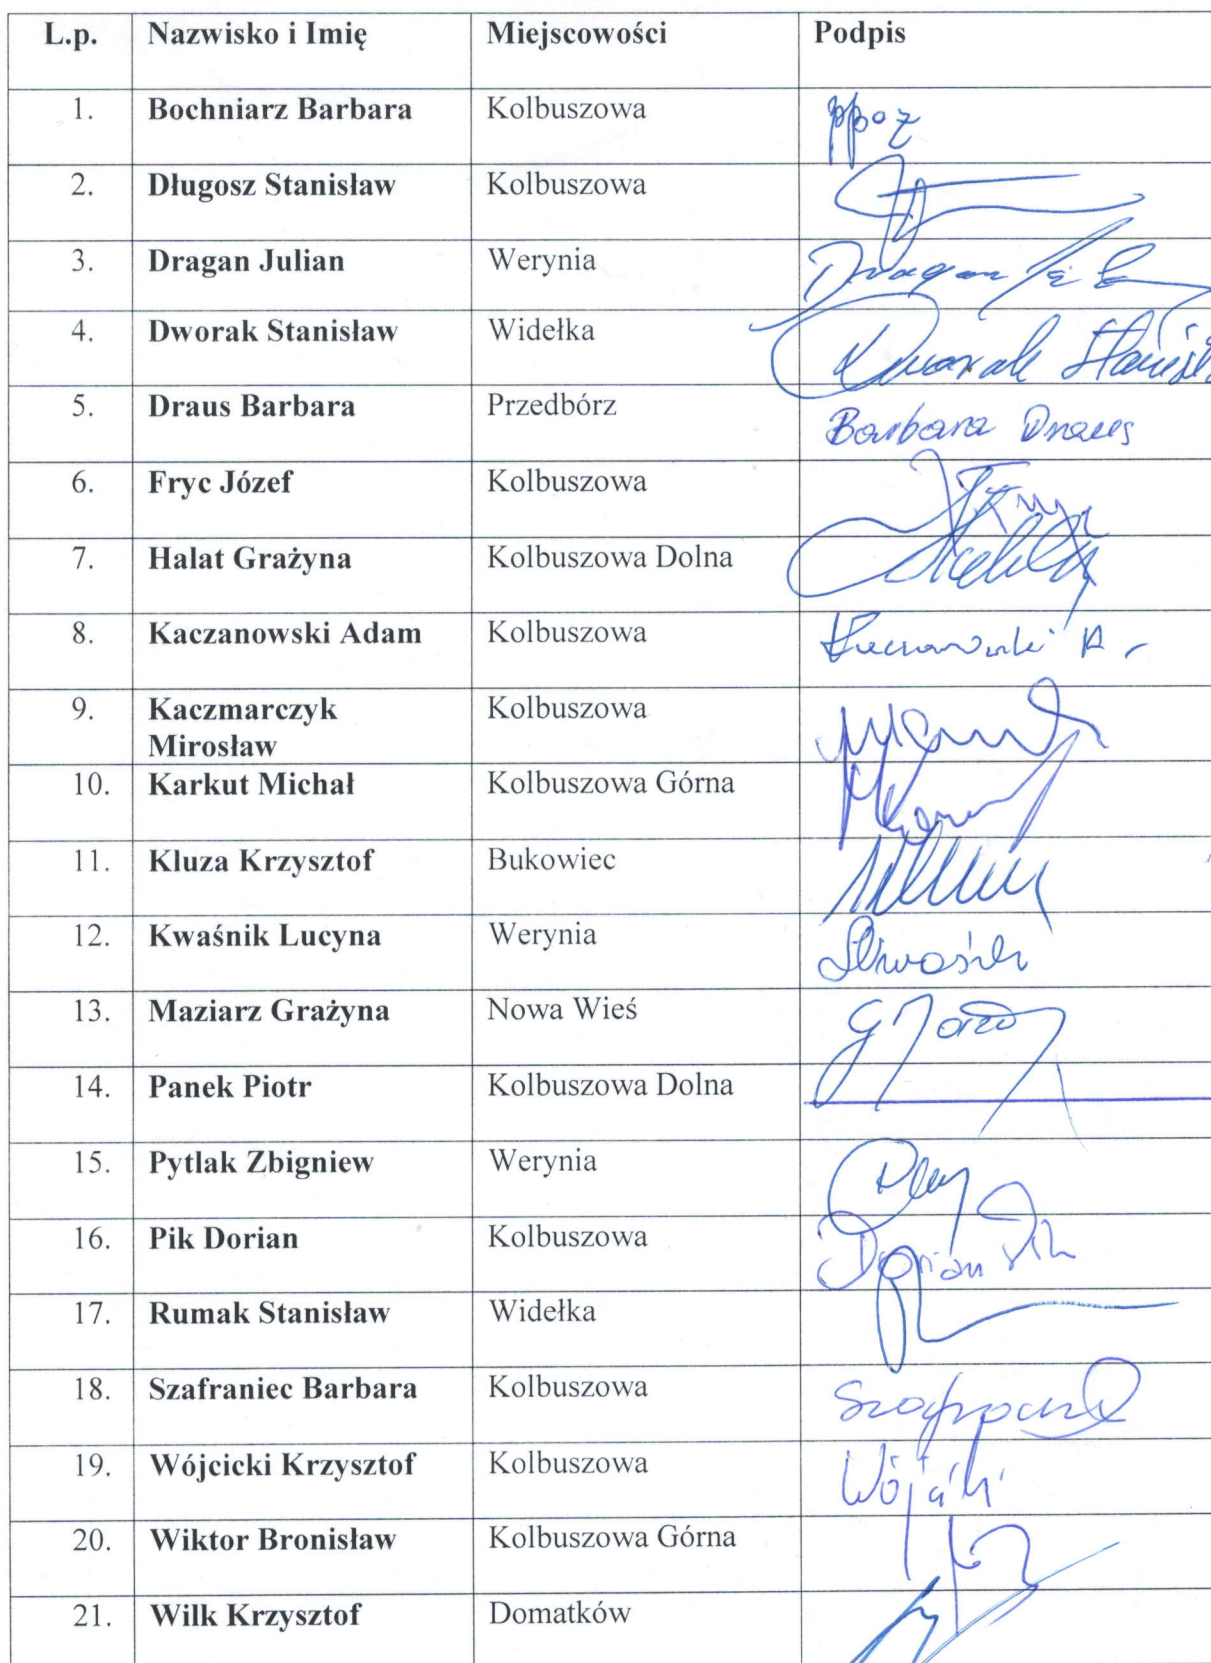 L.p. Nazwisko i Imię Miejscowości Podpis
1. Bochniarz Barbara Kolbuszowa
2. Długosz Stanisław Kolbuszowa
3. Dragan Julian Werynia Dragan
4. Dworak Stanisław Widełka Dworak Stanisł
5. Draus Barbara Przedbórz Barbara Draus
6. Fryc Józef Kolbuszowa
7. Halat Grażyna Kolbuszowa Dolna
8. Kaczanowski Adam Kolbuszowa Kaczanowski A.
9. Kaczmarczyk Kolbuszowa
Mirosław
10. Karkut Michał Kolbuszowa Górna
11. Kluza Krzysztof Bukowiec
12. Kwaśnik Lucyna Werynia
13. Maziarz Grażyna Nowa Wieś
14. Panek Piotr Kolbuszowa Dolna
15. Pytlak Zbigniew Werynia
16. Pik Dorian Kolbuszowa Dorian Pik
17. Rumak Stanisław Widełka
18. Szafraniec Barbara Kolbuszowa
19. Wójcicki Krzysztof Kolbuszowa
20. Wiktor Bronisław Kolbuszowa Górna
21. Wilk Krzysztof Domatków